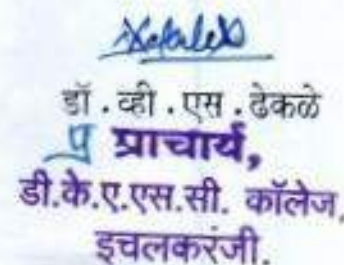 डॉ . व्ही . एस . ढेकळे
प्र प्राचार्य,
डी.के.ए.एस.सी. कॉलेज,
इचलकरंजी.